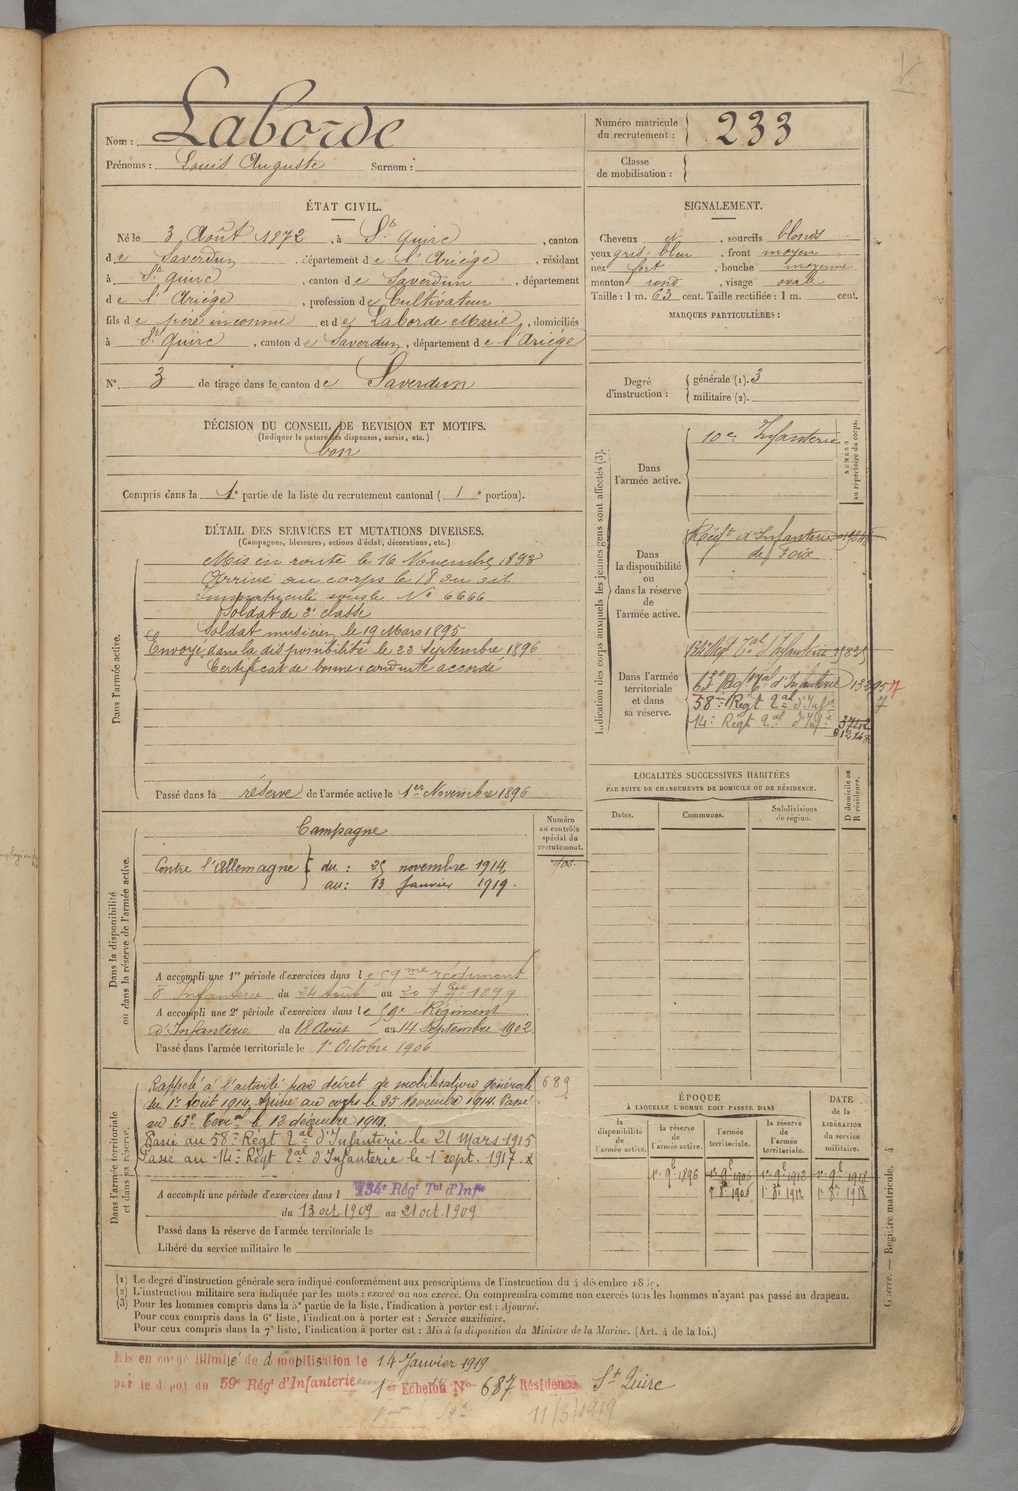 Nom : Laborde
Prénoms : Louis Auguste Surnom :
Numéro matricule du recrutement : 233
Classe de mobilisation :
ÉTAT CIVIL.
Né le 3 Août 1872, à St Quirc, canton
de Saverdun, département de l'Ariège, résidant
à St Quirc, canton de Saverdun, département
de l'Ariège, profession de Cultivateur
fils de père inconnu et de Laborde Marie, domiciliés
à St Quirc, canton de Saverdun, département de l'Ariège
N° 3 de tirage dans le canton de Saverdun
SIGNALEMENT.
Cheveux et, sourcils blonds
yeux gris-bleu, front moyen
nez fort, bouche moyenne
menton rond, visage ovale
Taille : 1 m. 63 cent. Taille rectifiée : 1 m. cent.
MARQUES PARTICULIÈRES :
Degré d'instruction : générale (1). 3
militaire (2).
DÉCISION DU CONSEIL DE REVISION ET MOTIFS.
(Indiquer la nature des dispenses, sursis, etc.)
bon
Compris dans la 1e partie de la liste du recrutement cantonal ( 1e portion).
DÉTAIL DES SERVICES ET MUTATIONS DIVERSES.
(Campagnes, blessures, actions d'éclat, décorations, etc.)
Dans l'armée active.
Mis en route le 16 Novembre 1893
Arrivé au corps le 18 du dit
Immatriculé sous le N° 6666
Soldat de 2e classe
Soldat musicien le 19 Mars 1895
Envoyé dans la disponibilité le 22 Septembre 1896
Certificat de bonne conduite accordé
Passé dans la réserve de l'armée active le 1er Novembre 1896
Indication des corps auxquels les jeunes gens sont affectés (3).
NUMÉRO au répertoire du corps.
Dans l'armée active.
10e Infanterie
Dans la disponibilité ou dans la réserve de l'armée active.
Régt d'Infanterie
de Foix
Dans l'armée territoriale et dans sa réserve.
134e Régt Tal d'Infanterie
63e Rgt Tal d'Infanterie
58me Régt Tal d'Infie
14e Régt Tal d'Infie 3742
LOCALITÉS SUCCESSIVES HABITÉES
PAR SUITE DE CHANGEMENTS DE DOMICILE OU DE RÉSIDENCE.
Dates. Communes. Subdivisions de région. D domicile ou R résidence.
Dans la disponibilité ou dans la réserve de l'armée active.
Numéro au contrôle spécial du recrutement.
Campagne
Contre l'Allemagne du : 25 novembre 1914
au : 13 Janvier 1919.
A accompli une 1re période d'exercices dans le 59me régiment
d'Infanterie du 24 Août au 20 7bre 1899
A accompli une 2e période d'exercices dans le 59e Régiment
d'Infanterie du 18 Août au 14 Septembre 1902
Passé dans l'armée territoriale le 1er Octobre 1906
Dans l'armée territoriale et dans sa réserve.
Rappelé à l'activité par décret de mobilisation générale 689
du 1er Août 1914. Arrivé au corps le 25 Novembre 1914. Passé
au 63e Terral le 12 décembre 1914.
Passé au 58me Régt Tal d'Infanterie le 21 Mars 1915
Passé au 14e Régt Tal d'Infanterie le 1er sept. 1917. x
A accompli une période d'exercices dans l 134e Régt Tal d'Infie
du 13 oct 1909 au 21 oct. 1909
Passé dans la réserve de l'armée territoriale le
Libéré du service militaire le
ÉPOQUE
À LAQUELLE L'HOMME DOIT PASSER DANS
DATE de la LIBÉRATION du service militaire.
la disponibilité de l'armée active. la réserve de l'armée active. l'armée territoriale. la réserve de l'armée territoriale.
1er 9e 1896 1er 9e 1906 1er 9e 1912 1er 9e 1918
1er 8e 1906 1er 8e 1912 1er 8e 1918
(1) Le degré d'instruction générale sera indiqué conformément aux prescriptions de l'instruction du 4 décembre
(2) L'instruction militaire sera indiquée par les mots : exercé ou non exercé. On comprendra comme non exercés tous les hommes n'ayant pas passé au drapeau.
(3) Pour les hommes compris dans la 5e partie de la liste, l'indication à porter est : Ajourné.
Pour ceux compris dans la 6e liste, l'indication à porter est : Service auxiliaire.
Pour ceux compris dans la 7e liste, l'indication à porter est : Mis à la disposition du Ministre de la Marine. (Art. 4 de la loi.)
Guerre. — Registre matricule. 4
Mis en congé illimité de démobilisation le 14 Janvier 1919
par le dépôt du 59e Régt d'Infanterie 1er Échelon N° 687 Résidence St Quirc
11/3/1919